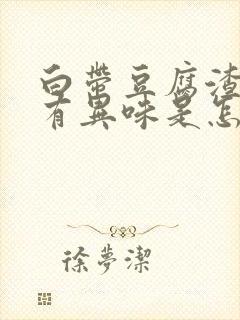 白帶豆腐渣
有異味是怎
徐夢潔